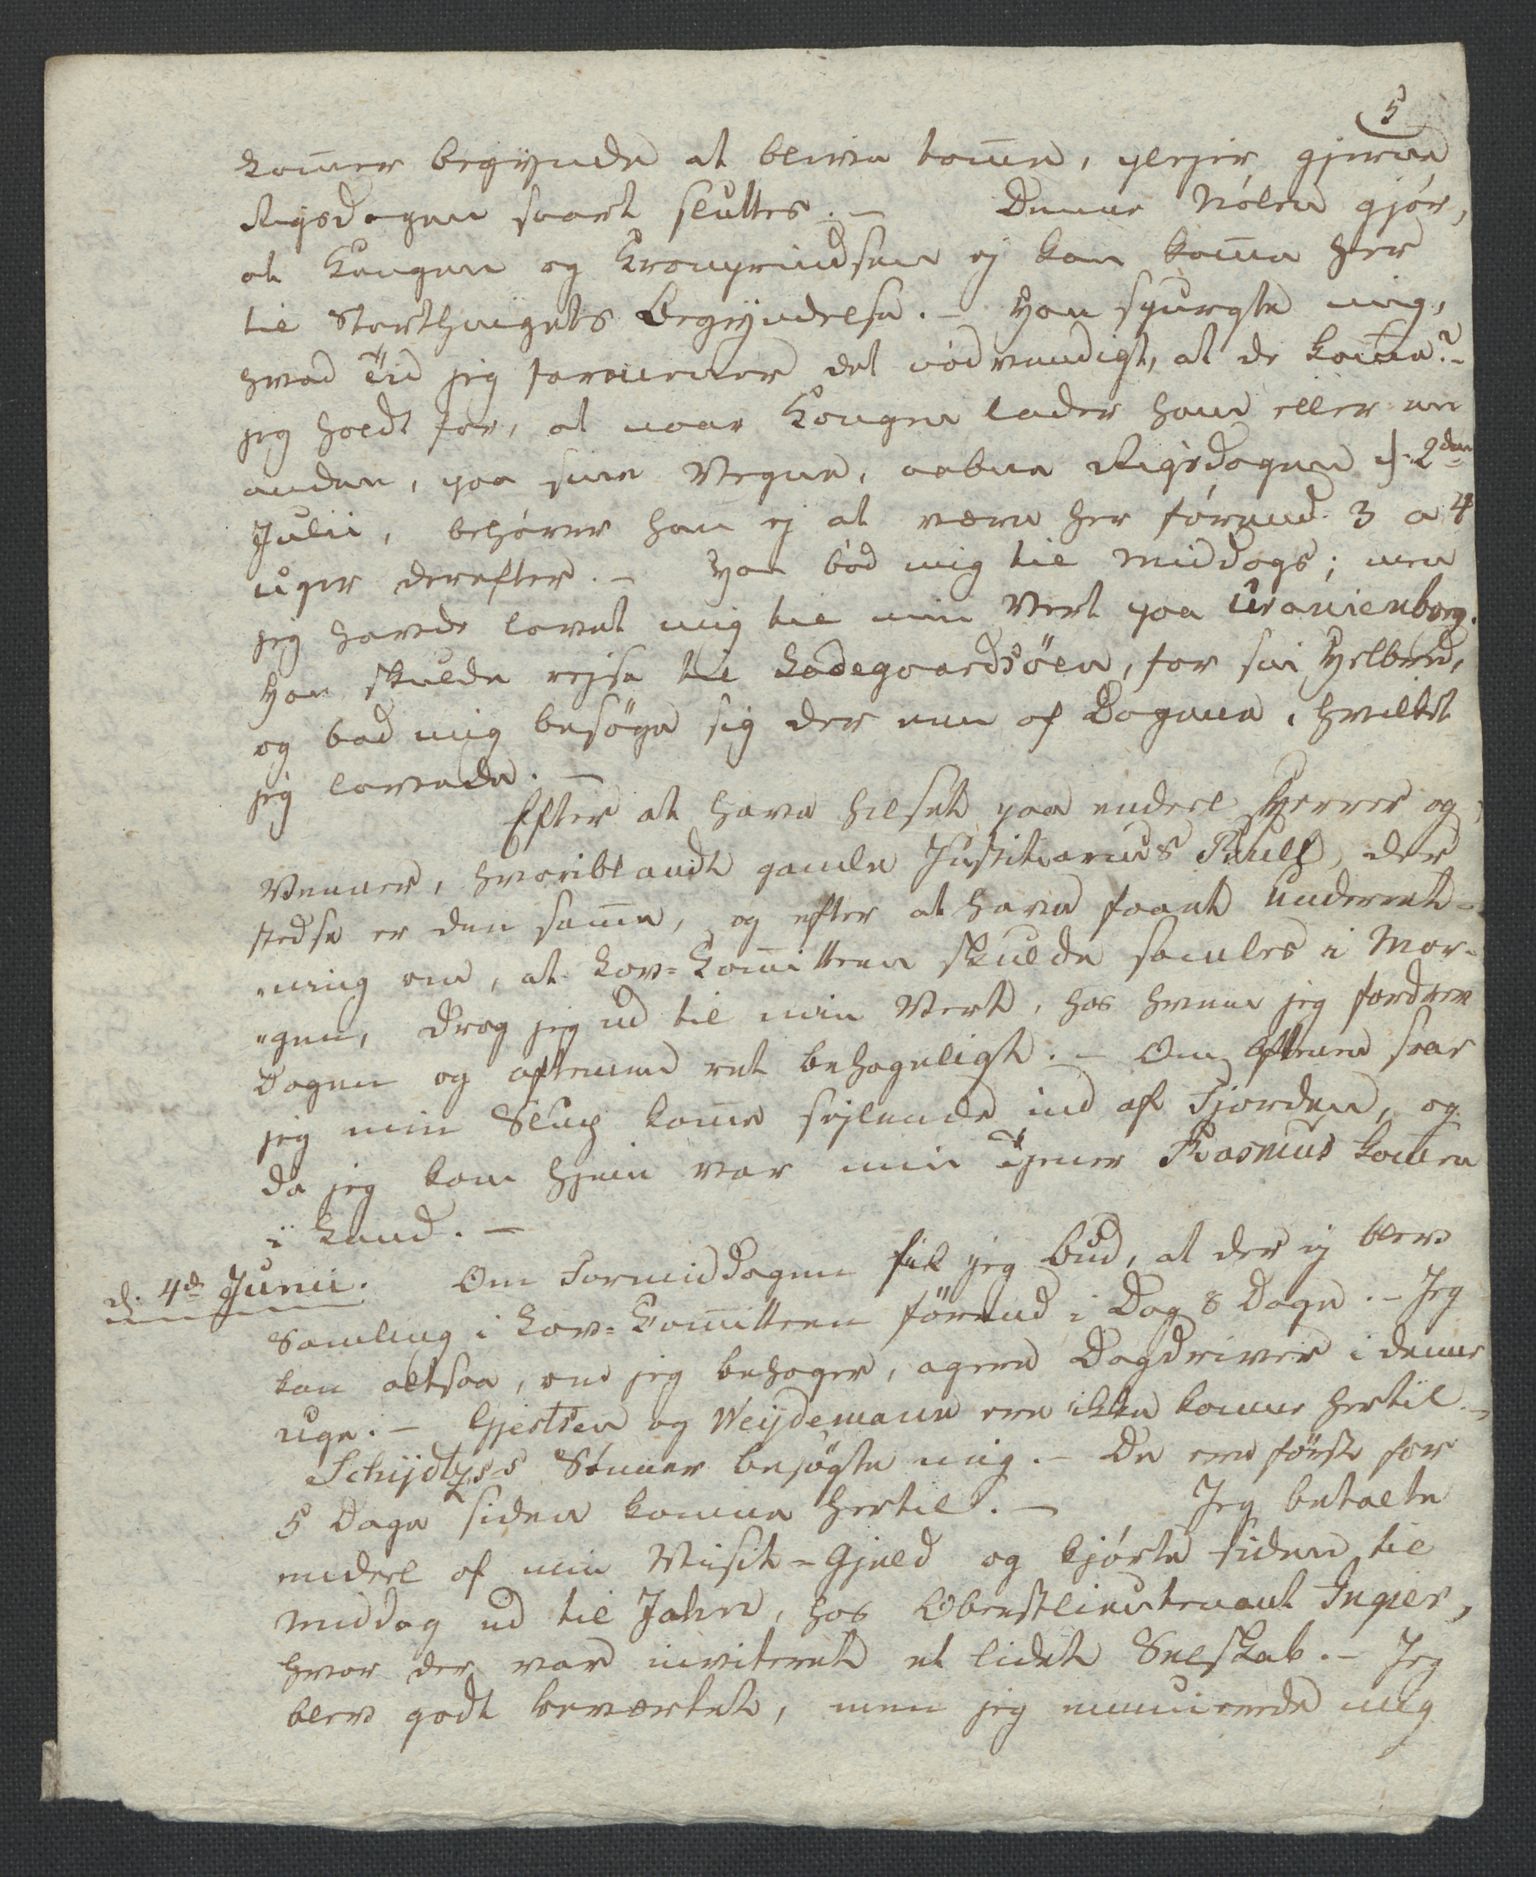 5
kom̅er begynde at blive tom̅e, plejer gjerne
Rigsdagen snart sluttes. – Denne Nølen gjør,
at Kongen og Kronprindsen ej kan kom̅e her
til Storthingets Begyndelse. – Han spurgte mig,
hvad Tid jeg formener det nødvendigt, at de kom̅e? –
jeg holdt for, at naar Kongen lader ham eller en
anden, paa sine Vegne, aabne Rigsdagen d. 2den
Julii, behøver han ej at være her førend 3 a 4
uger derefter. – Han bød mig til Middags; men
jeg havde lovet mig til min Vert paa Uranienborg.
Han skulde rejse til Ladegaardsöen, for sin Helbred,
og bad mig besöge sig der een af Dagene, hvilket
jeg lovede. –
Efter at have hilset paa endeel Herrer og
Venner, hvoriblandt gamle Justitiarius Bull, der
stedse er den sam̅e, og efter at have faaet Underret-
-ning om, at Lov-Com̅itteen skulde samles i Mor-
-gen, drog jeg ud til min Vert, hos hvem jeg fordrev
Dagen og Aftenen ret behageligt. – Om Aftenen saae
jeg min Slup kom̅e sejlende ind af Fjorden, og
da jeg kom hjem var min Tjener Rasmus kom̅en
i Land. –
d. 4de Junii. Om Formiddagen fik jeg Bud, at der ej blev
Samling i Lov-Com̅itteen förend i Dag 8 Dage. – Jeg
kan altsaa, om jeg behager, agere Dagdriver i denne
Uge. – Gjertsen og Weydemann ere ikke komne hertil. –
Schydtz's Sönner besögte mig. – De ere först for
5 Dage siden komne hertil. – Jeg betalte
endeel af min Visit-Gjeld og kjørte siden til
Middag ud til Jahn, hos Oberstlieutenant Ingier,
hvor der var inviteret et lidet Selskab. – Jeg
blev godt beværtet, men jeg ennuierede mig